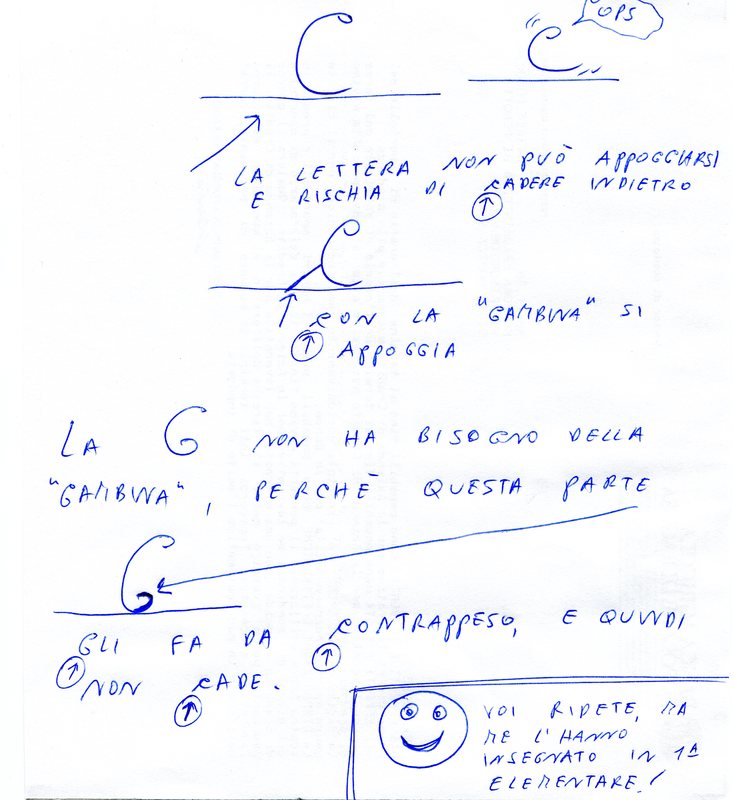 OPS
C
C
LA LETTERA NON PUÒ APPOGGIARSI
E RISCHIA DI CADERE INDIETRO
C
CON LA "GAMBINA" SI
APPOGGIA
LA G NON HA BISOGNO DELLA
"GAMBINA", PERCHÈ QUESTA PARTE
G
GLI FA DA CONTRAPPESO, E QUINDI
NON CADE.
VOI RIDETE, MA
ME L'HANNO
INSEGNATO IN 1ª
ELEMENTARE!